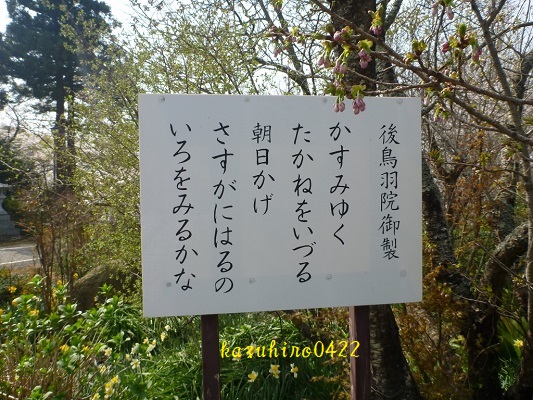 後鳥羽院御製
かすみゆく
たかねをいづる
朝日かげ
さすがにはるの
いろをみるかな
kazuhiro0422